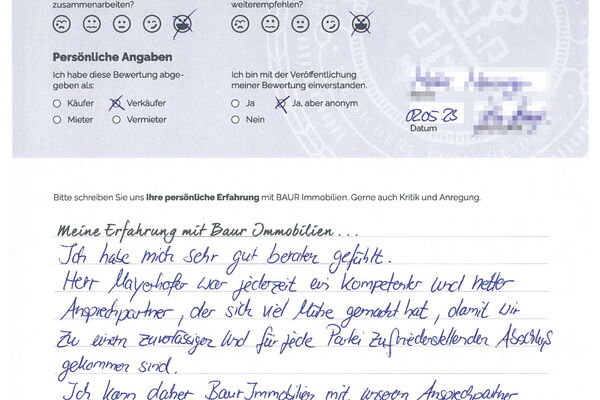 zusammenarbeiten?
weiterempfehlen?
Persönliche Angaben
Ich habe diese Bewertung abge-
geben als:
Käufer
Verkäufer
Mieter
Vermieter
Ich bin mit der Veröffentlichung
meiner Bewertung einverstanden.
Ja
Ja, aber anonym
Nein
02.05.23
Datum
Bitte schreiben Sie uns Ihre persönliche Erfahrung mit BAUR Immobilien. Gerne auch Kritik und Anregung.
Meine Erfahrung mit Baur Immobilien...
Ich habe mich sehr gut beraten gefühlt.
Herr Mayerhofer war jederzeit ein kompetenter und netter
Ansprechpartner, der sich viel Mühe gemacht hat, damit wir
zu einem zuverlässigen und für jede Partei zufriedenstellenden Abschluss
gekommen sind.
Ich kann daher Baur Immobilien mit unseren Ansprechpartner